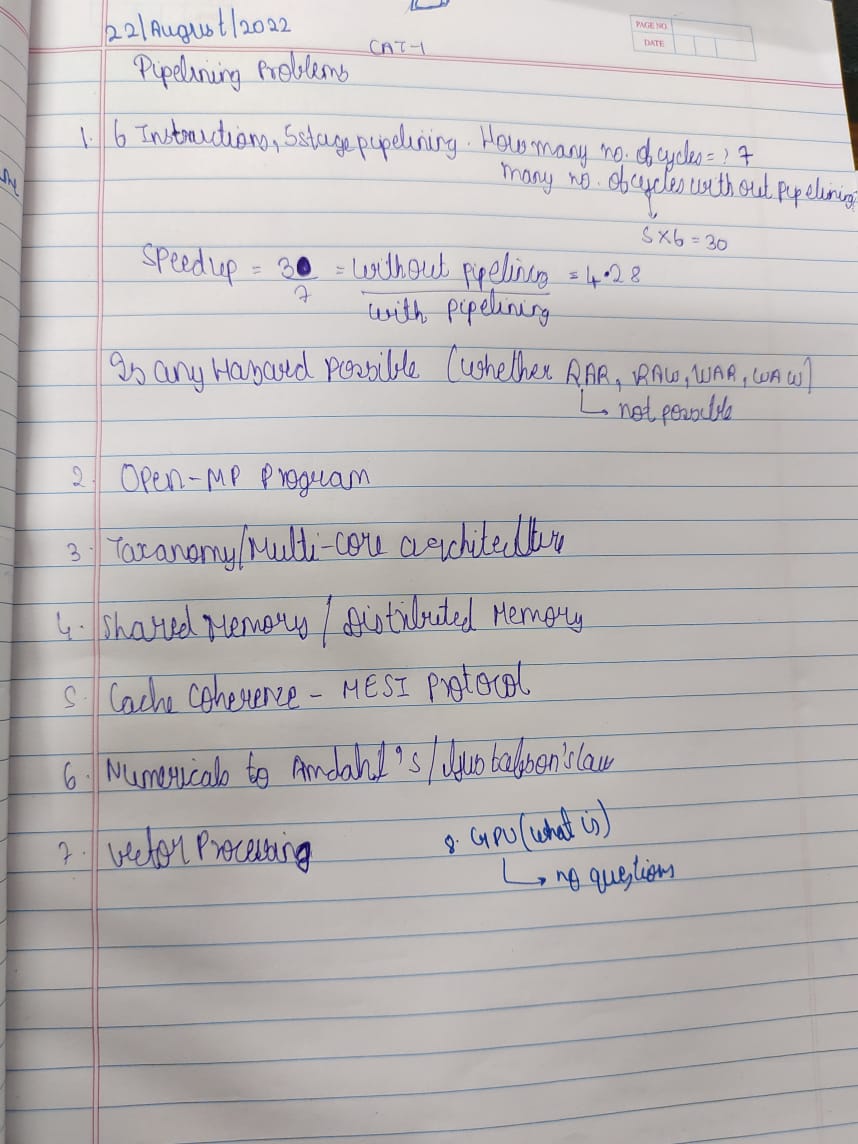 22/August/2022
PAGE NO.
DATE
CAT-1
Pipelining Problems
1. 6 Instructions, 5 stage pipelining. How many no. of cycles = ? 7
many no. of cycles without pipelining
5 x 6 = 30
Speedup = 30 = without pipelining = 4.28
7 with pipelining
Is any Hazard possible (whether RAR, RAW, WAR, WAW)
not possible
2. Open-MP Program
3. Taxanomy/Multi-core architecture
4. Shared Memory / Distributed Memory
5. Cache Coherence - MESI Protocol
6. Numericals to Amdahl's/Gustafson's law
7. Vector Processing
8. GPU (what is)
no questions